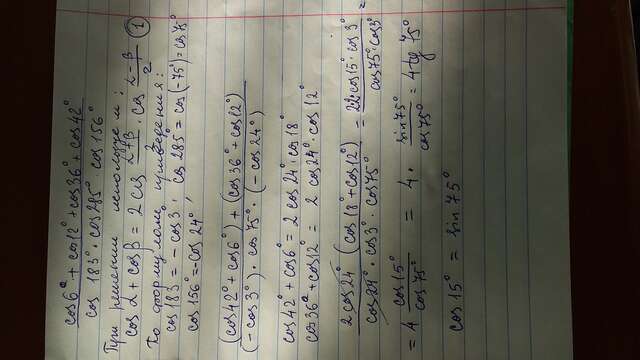 cos6° + cos12° + cos36° + cos42°
cos 183° · cos285° · cos156°
При решении используем:
cos α + cos β = 2 cos (α+β)/2 · cos (α-β)/2 (1)
По формулам приведения:
cos 183 = - cos3°; cos 285° = cos(-75°) = cos75°
cos 156° = -cos 24°;
(cos42° + cos6°) + (cos36° + cos12°)
(-cos 3°) · cos 75° · (-cos 24°)
cos42° + cos6° = 2 cos 24° · cos 18°
cos36° + cos12° = 2 cos24° · cos 12°
2 cos24° (cos 18° + cos12°) / cos24° · cos 3° · cos75° = 2·2·cos15° · cos 3° / cos75° · cos3° =
= 4 cos15° / cos 75° = 4 · sin75° / cos75° = 4 tg 75°
cos 15° = sin 75°